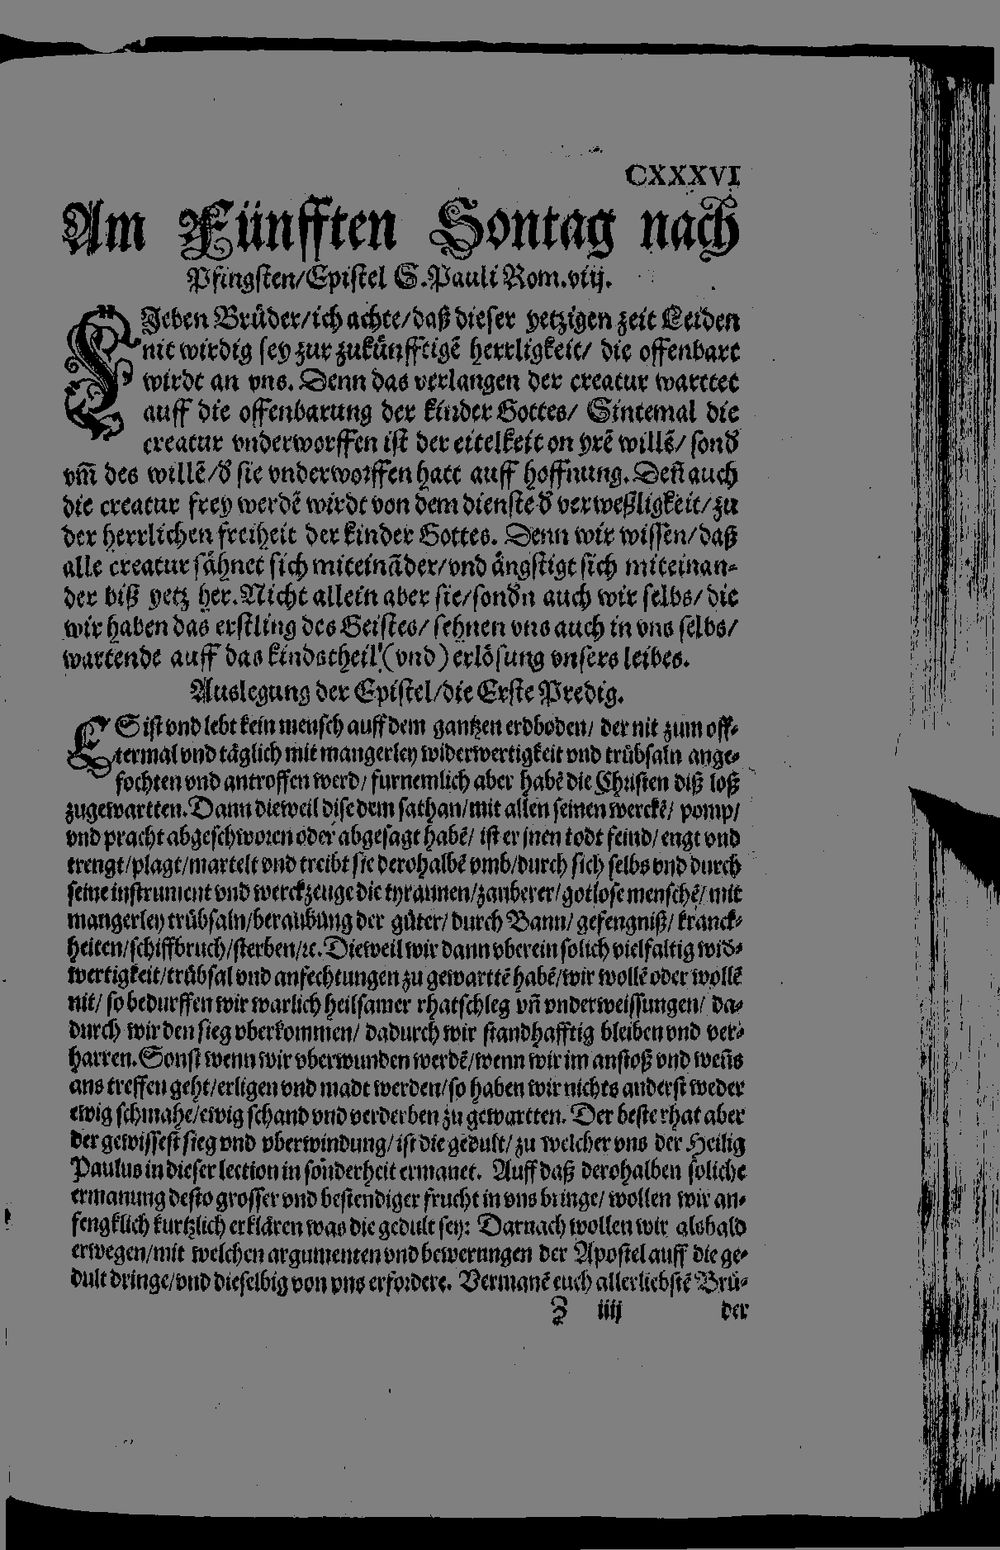 CXXXVI
Am Fünfften Sontag nach
Pfingsten/Epistel S.Pauli Rom.viij.
LJeben Brüder/ich achte/daß dieser yetzigen zeit Leiden
nit wirdig sey zur zukünfftigē herrligkeit/ die offenbart
wirdt an vns. Denn das verlangen der creatur warttet
auff die offenbarung der kinder Gottes/ Sintemal die
creatur vnderworffen ist der eitelkeit on yrē willē/ sond̄
vm̄ des willē/d̄ sie vnderworffen hatt auff hoffnung. Deñ auch
die creatur frey werdē wirdt von dem dienste d̄ verweßligkeit/ zu
der herrlichen freiheit der kinder Gottes. Denn wir wissen/ daß
alle creatur sähnet sich miteināder/vnd ängstigt sich miteinan-
der biß yetz her. Nicht allein aber sie/sond̄n auch wir selbs/ die
wir haben das erstling des Geistes/ sehnen vns auch in vns selbs/
wartende auff das kindstheil/(vnd) erlösung vnsers leibes.
Auslegung der Epistel/die Erste Predig.
ES ist vnd lebt kein mensch auff dem gantzen erdboden/ der nit zum off-
termal vnd täglich mit mangerley widerwertigkeit vnd trübsaln ange-
fochten vnd antroffen werd/ furnemlich aber habē die Christen diß loß
zugewartten. Dann dieweil dise dem sathan/mit allen seinen werckē/ pomp/
vnd pracht abgeschworen oder abgesagt habē/ ist er jnen todt feind/ engt vnd
trengt/plagt/martelt vnd treibt sie derohalbē vmb/durch sich selbs vnd durch
seine instrument vnd werckzeuge die tyrannen/zauberer/gotlose menschē/ mit
mangerley trübsaln/beraubung der güter/ durch Bann/ gefengniß/ kranck-
heiten/schiffbruch/sterben/ꝛc. Dieweil wir dann vberein solich vielfaltig wid̄-
wertigkeit/trübsal vnd anfechtungen zu gewarttē habē/wir wollē oder wollē
nit/ so bedurffen wir warlich heilsamer rhatschleg vñ vnderweissungen/ da-
durch wir den sieg vberkommen/ dadurch wir standhafftig bleiben vnd ver-
harren. Sonst wenn wir vberwunden werdē/wenn wir im anstoß vnd weñs
ans treffen geht/erligen vnd madt werden/so haben wir nichts anderst weder
ewig schmahe/ewig schand vnd verderben zu gewartten. Der beste rhat aber
der gewissest sieg vnd vberwindung/ ist die gedult/ zu welcher vns der Heilig
Paulus in dieser lection in sonderheit ermanet. Auff daß derohalben soliche
ermanung desto grosser vnd bestendiger frucht in vns bringe/ wollen wir an-
fengklich kurtzlich erklären was die gedult sey: Darnach wollen wir alsbald
erwegen/mit welchen argumenten vnd bewerungen der Apostel auff die ge-
dult dringe/vnd dieselbig von vns erfordere. Vermanē euch allerliebstē Brü-
Z iiij der